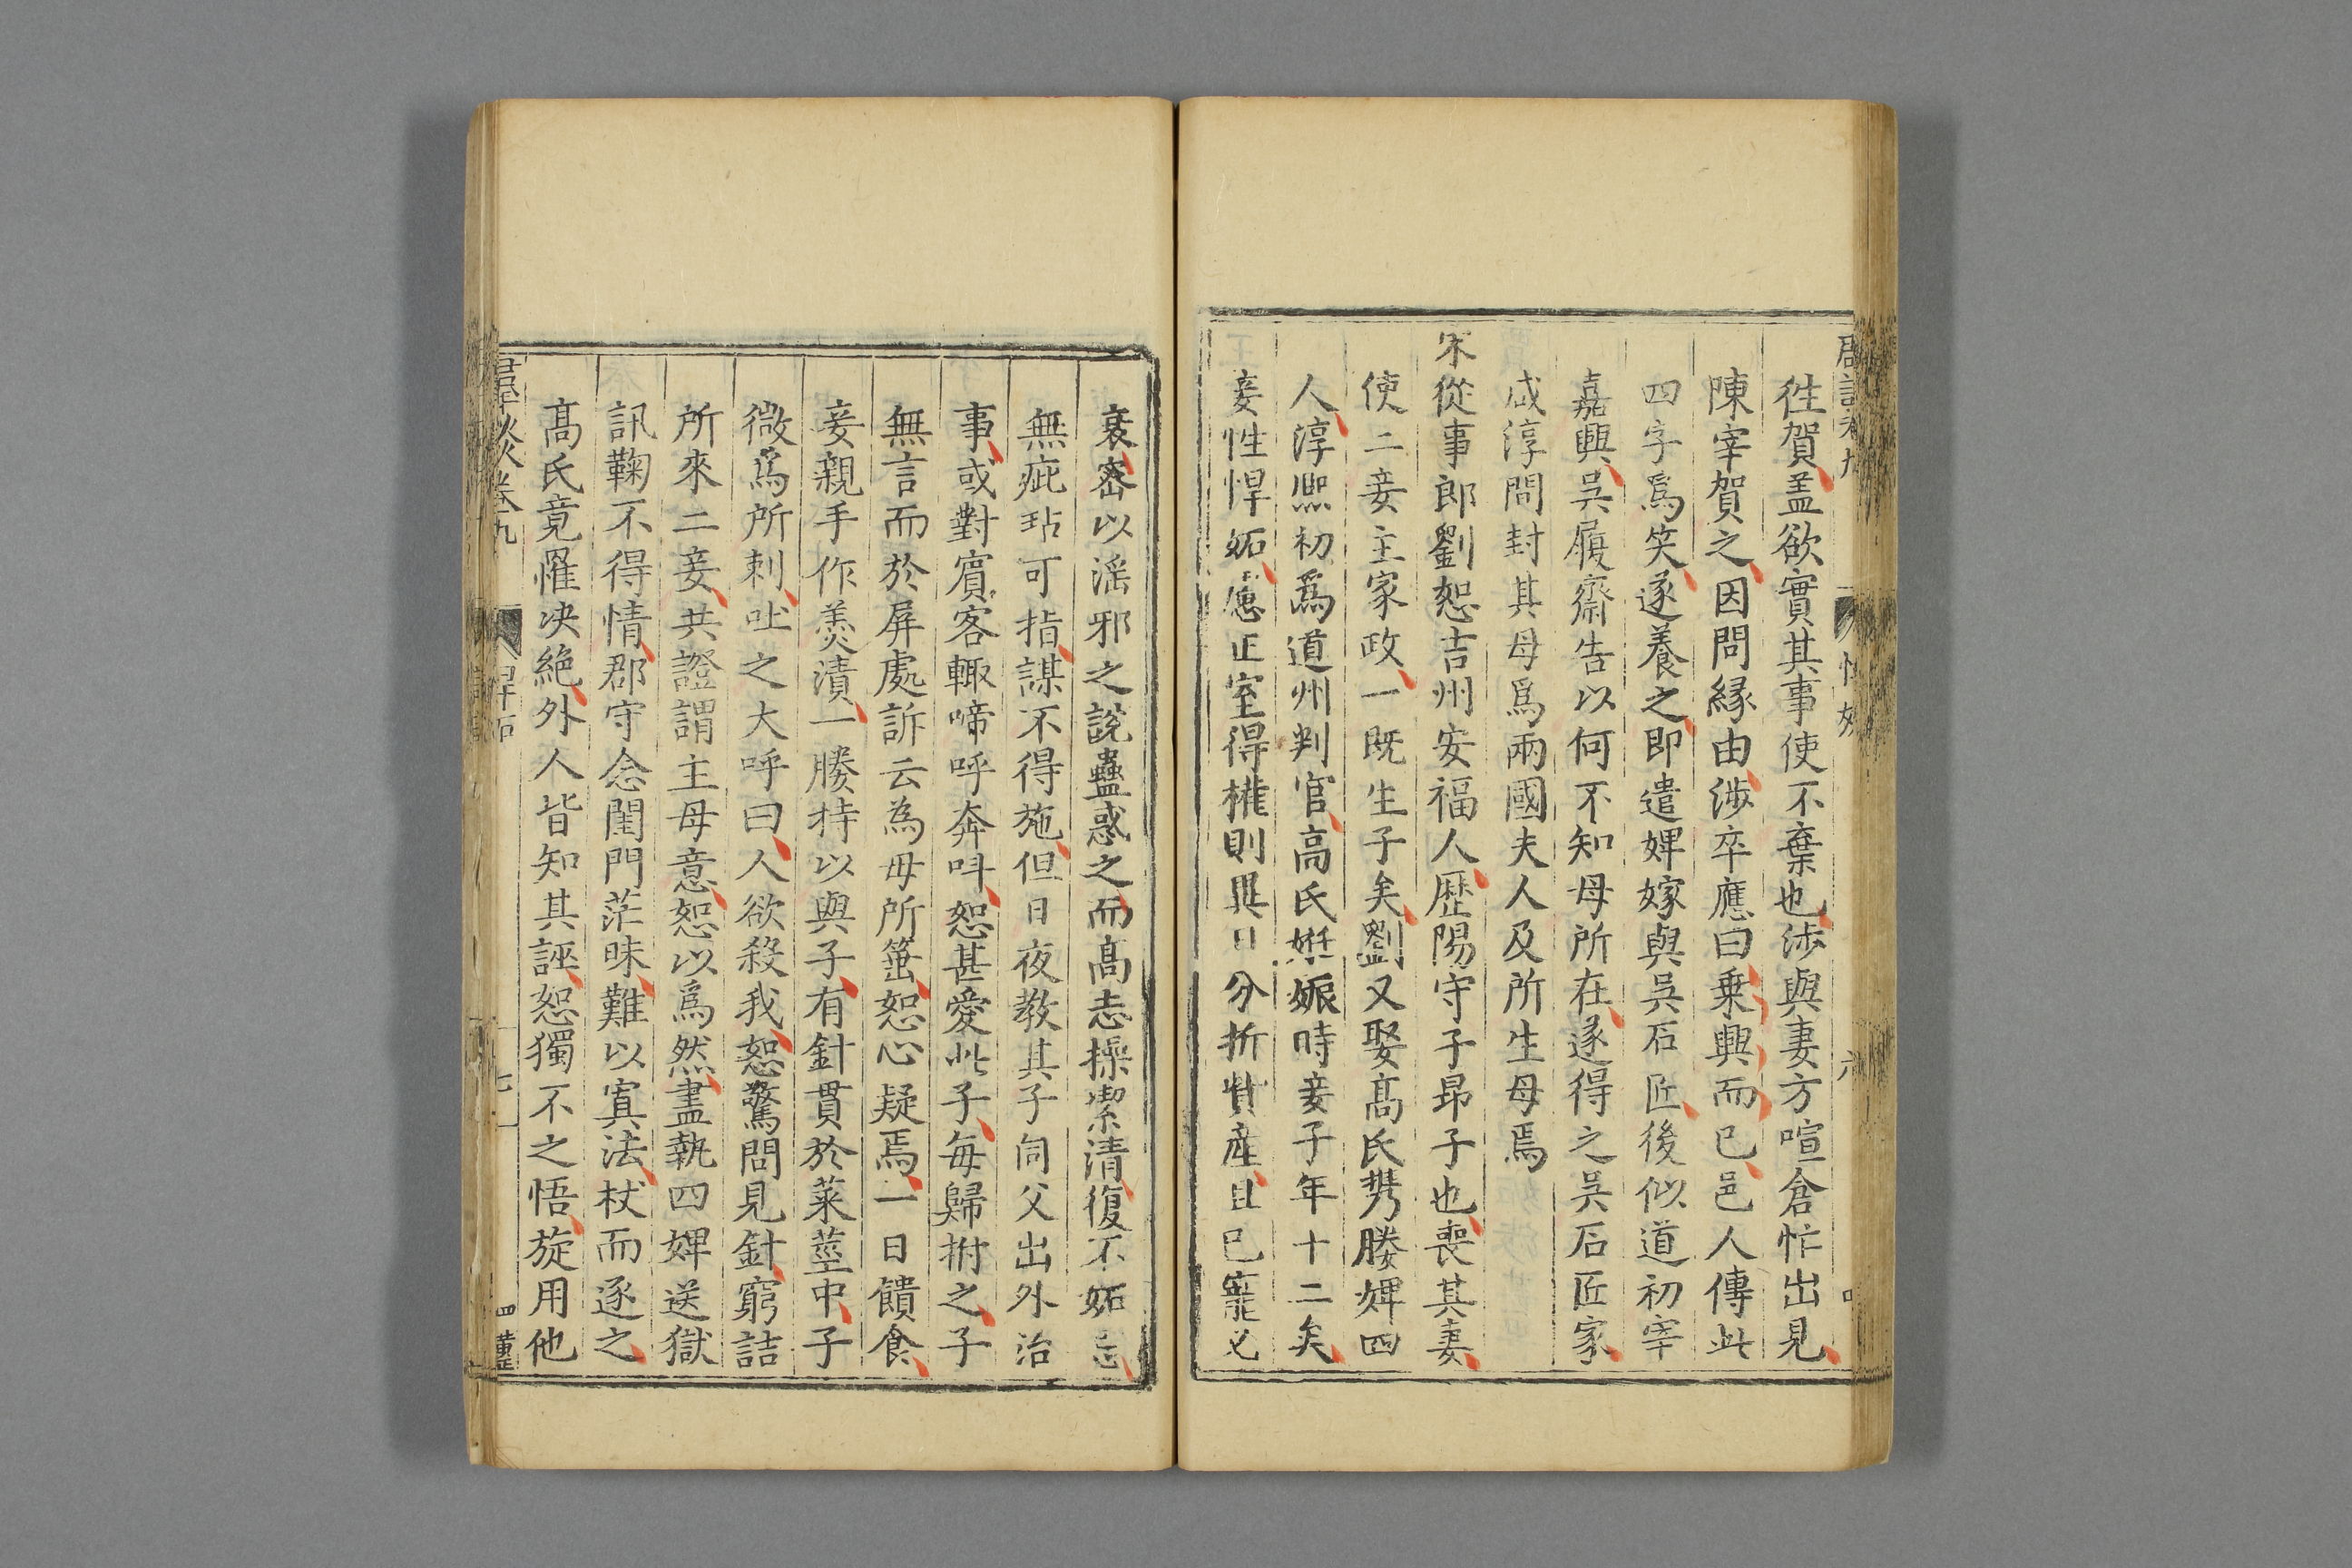 徃賀盖欲實其事使不棄也涉與妻方喧倉忙出見
陳宰賀之因問縁由涉卒應曰乗興而已邑人傳此
四字爲笑遂養之即遣婢嫁與吳石匠後似道初宰
嘉興吳履齋告以何不知母所在遂得之吳石匠家
咸淳間封其母爲兩國夫人及所生母焉
宋從事郎劉恕吉州安福人歴陽守子昻子也喪其妻
使二妾主家政一既生子矣劉又娶髙氏携媵婢四
人淳熈初爲道州判官高氏娠時妾子年十二矣
妾性悍妬慮正室得權則異日分析貲産且已寵必
衰宻以滛邪之說蠱惑之而髙志操潔清復不妬忌
無疵玷可指謀不得施但日夜教其子伺父出外治
事或對賔客輙啼呼奔呌恕甚愛此子每歸拊之子
無言而於屏處訴云為毋所箠恕心疑焉一日饋食
妾親手作羮漬一媵持以與子有針貫於菜莖中子
微爲所刺吐之大呼曰人欲殺我恕驚問見針窮詰
所來二妾共證謂主母意恕以爲然盡執四婢送獄
訊鞠不得情郡守念閨門茫昧難以寘法杖而逐之
髙氏竟罹决絶外人皆知其誣恕獨不之悟旋用他
卷九